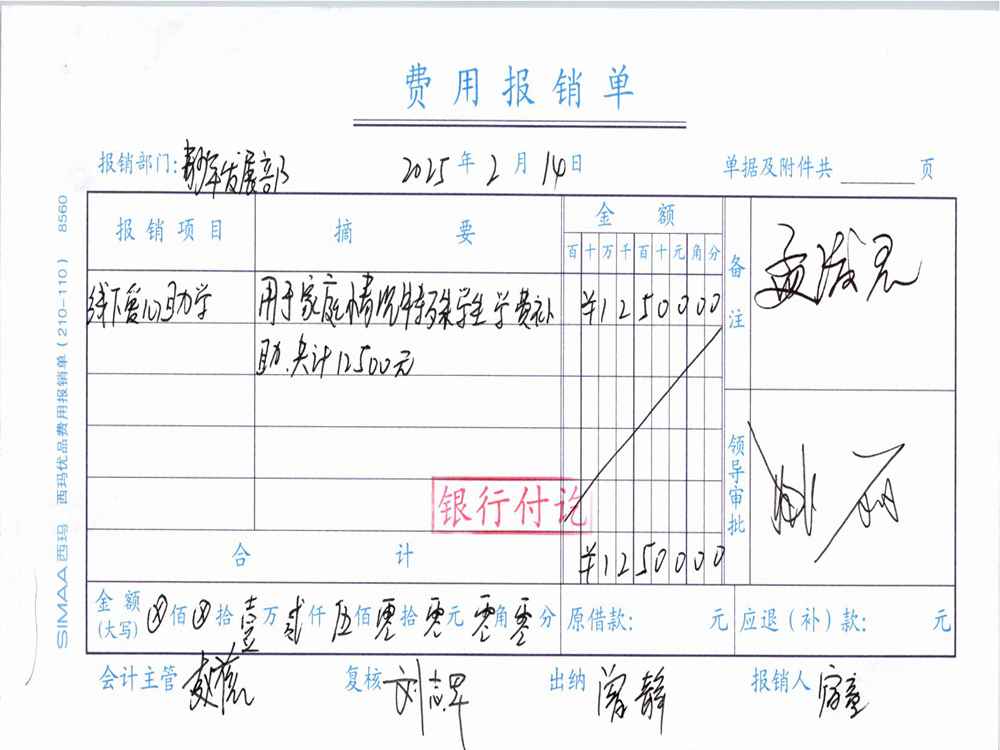 费用报销单
报销部门：青少年发展部 2025年2月14日 单据及附件共 页
报销项目 摘要 金额 备注
百十万千百十元角分
线下爱心助学 用于家庭情况特殊学生学费补 ¥1250000
助.共计12500元
领导审批
银行付讫
合计 ¥1250000
金额(大写) ⊗佰⊗拾壹万贰仟伍佰零拾零元零角零分 原借款: 元 应退(补)款: 元
会计主管 复核 刘志军 出纳 曾静 报销人
SIMAA西玛 西玛优品费用报销单(210-110) 8560